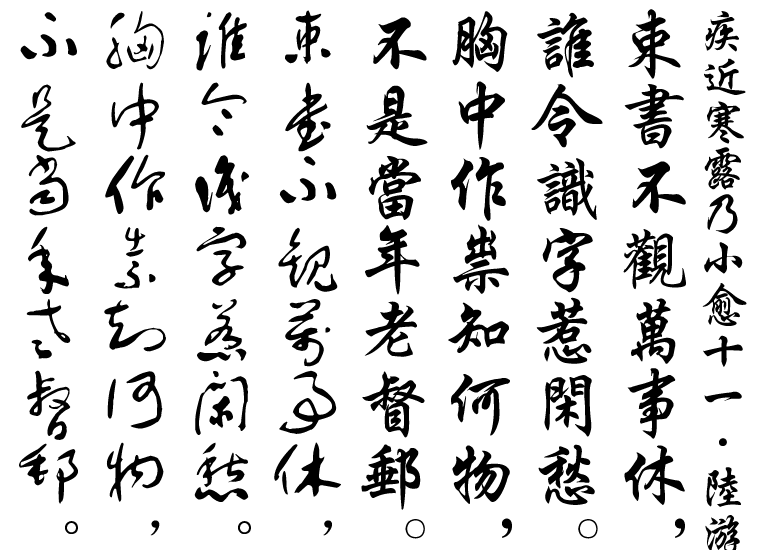 疾近寒露乃小愈十一・陸游
束書不觀萬事休，
誰令識字惹閑愁。
胸中作祟知何物，
不是當年老督郵。
束書不觀萬事休，
誰令識字惹閑愁。
胸中作祟知何物，
不是當年老督郵。